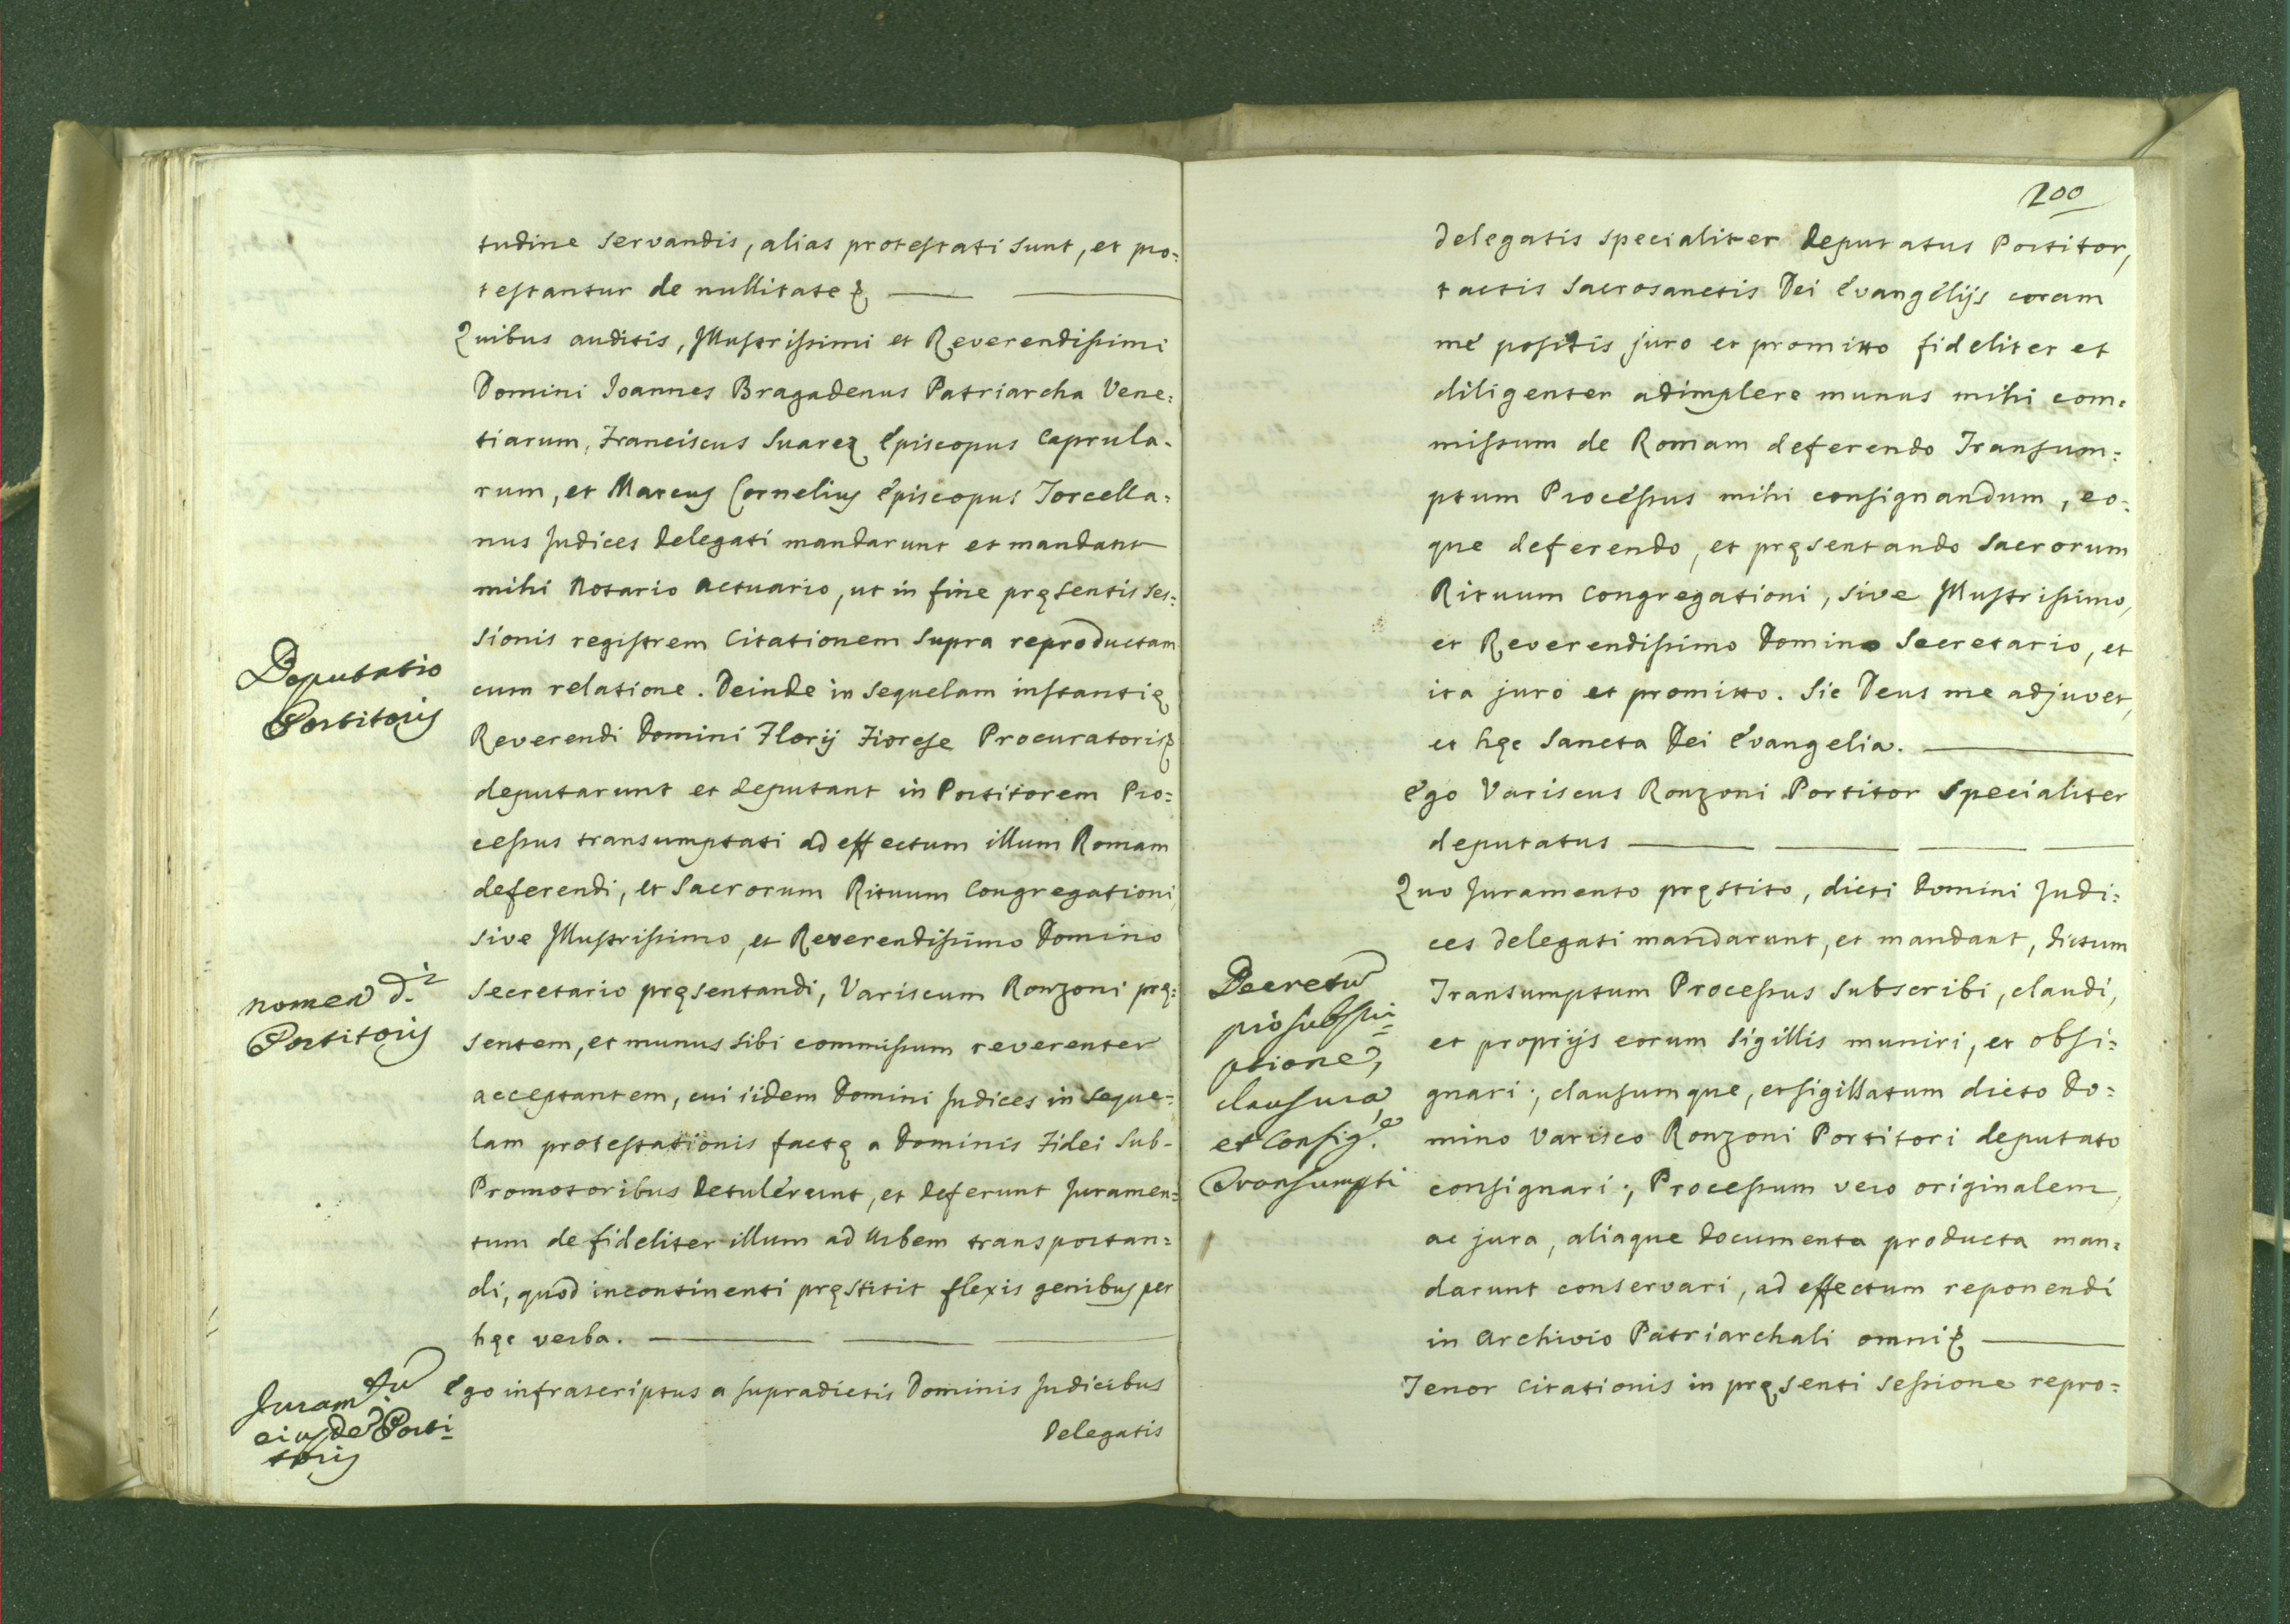 tudine servandis, alias protestati sunt, et pro=
testantur de nullitate &
Quibus auditis, Illustrissimi et Reverendissimi
Domini Joannes Bragadenus Patriarcha Vene=
tiarum, Franciscus Suarez Episcopus Caprula=
rum, et Marcus Cornelius Episcopus Torcella=
nus Judices Delegati mandarunt et mandant
mihi Notario Actuario, ut in fine pręsentis ses=
sionis registrem Citationem supra reproductam
Deputatio
cum relatione. Deinde in sequelam instantię
Portitoris
Reverendi Domini Florij Fiorese Procuratoris &
deputarunt et deputant in Portitorem Pro=
cessus transumptati ad effectum illum Romam
deferendi, et Sacrorum Rituum Congregationi,
sive Illustrissimo, et Reverendissimo Domino
nomen d.i
Secretario pręsentandi, Variscum Ronzoni prę=
Portitoris
sentem, et munus sibi commissum reverenter
acceptantem, cui iidem Domini Judices in seque=
lam protestationis factę a Dominis Fidei Sub-
Promotoribus detulérunt, et deferunt Juramen=
tum de fideliter illum ad Urbem transportan=
di, quod incontinenti pręstitit flexis genibus per
hęc verba.
Juram.tu
eiusde Porti=
toris
Ego infrascriptus a supradictis Dominis Judicibus
Delegatis
200
delegatis specialiter deputatus Portitor,
tactis Sacrosanctis Dei Evangélijs coram
mé positis juro et promitto fideliter et
diligenter adimplere munus mihi com=
missum de Romam deferendo Transum=
ptum Procéssus mihi consignandum, eo=
que deferendo, et pręsentando Sacrorum
Rituum Congregationi, sive Illustrissimo,
et Reverendissimo Domino Secretario, et
ita juro et promitto. Sic Deus me adjuvet,
et hęc Sancta Dei Evangelia.
Ego Variscus Ronzoni Portitor specialiter
deputatus
Quo Juramento pręstito, dicti Domini Judi=
ces delegati mandarunt, et mandant, dictum
Decretu
pro subscri=
ptione,
clausura,
et Consig.e
Transumpti
Transumptum Processus subscribi, claudi,
et proprijs eorum sigillis muniri, et obsi=
gnari; clausumque, et sigillatum dicto Do=
mino Varisco Ronzoni Portitori deputato
consignari; Processum vero originalem,
ac jura, aliaque documenta producta man=
darunt conservari, ad effectum reponendi
in Archivio Patriarchali omni &
Tenor Citationis in pręsenti sessione repro=